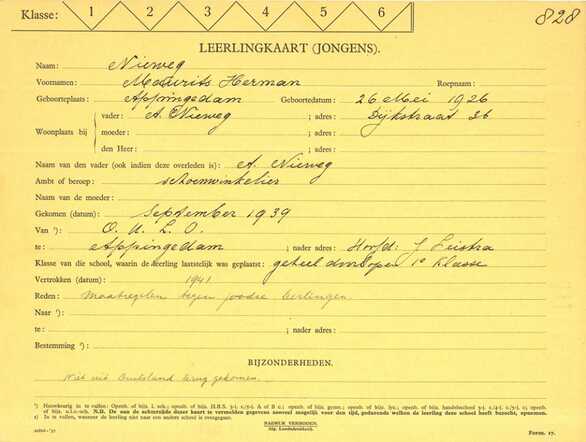 Klasse: 1 2 3 4 5 6 828
LEERLINGKAART (JONGENS).
Naam: Nieweg
Voornamen: Maurits Herman Roepnaam:
Geboorteplaats: Appingedam Geboortedatum: 26 Mei 1926
Woonplaats bij vader: A. Nieweg ; adres: Dijkstraat 36
moeder: ; adres:
den Heer: ; adres:
Naam van den vader (ook indien deze overleden is): A. Nieweg
Ambt of beroep: schoenwinkelier
Naam van de moeder:
Gekomen (datum): September 1939
Van ¹): O. U. L. O.
te: Appingedam ; nader adres: Hoofd: J Leistra
Klasse van die school, waarin de leerling laatstelijk was geplaatst: geheel doorlopen 1e Klasse
Vertrokken (datum): 1941
Reden: Maatregelen tegen joodse leerlingen.
Naar ¹):
te: ; nader adres:
Bestemming ²):
BIJZONDERHEDEN.
Niet uit Duitsland terug gekomen.
N.B. De aan de achterzijde dezer kaart te vermelden gegevens zooveel mogelijk voor den tijd, gedurende welken de leerling deze school heeft bezocht, opnemen.
²) In te vullen, wanneer de leerling niet naar een andere school is overgegaan.
NADRUK VERBODEN.
Alg. Landsdrukkerij.
Form. 17.